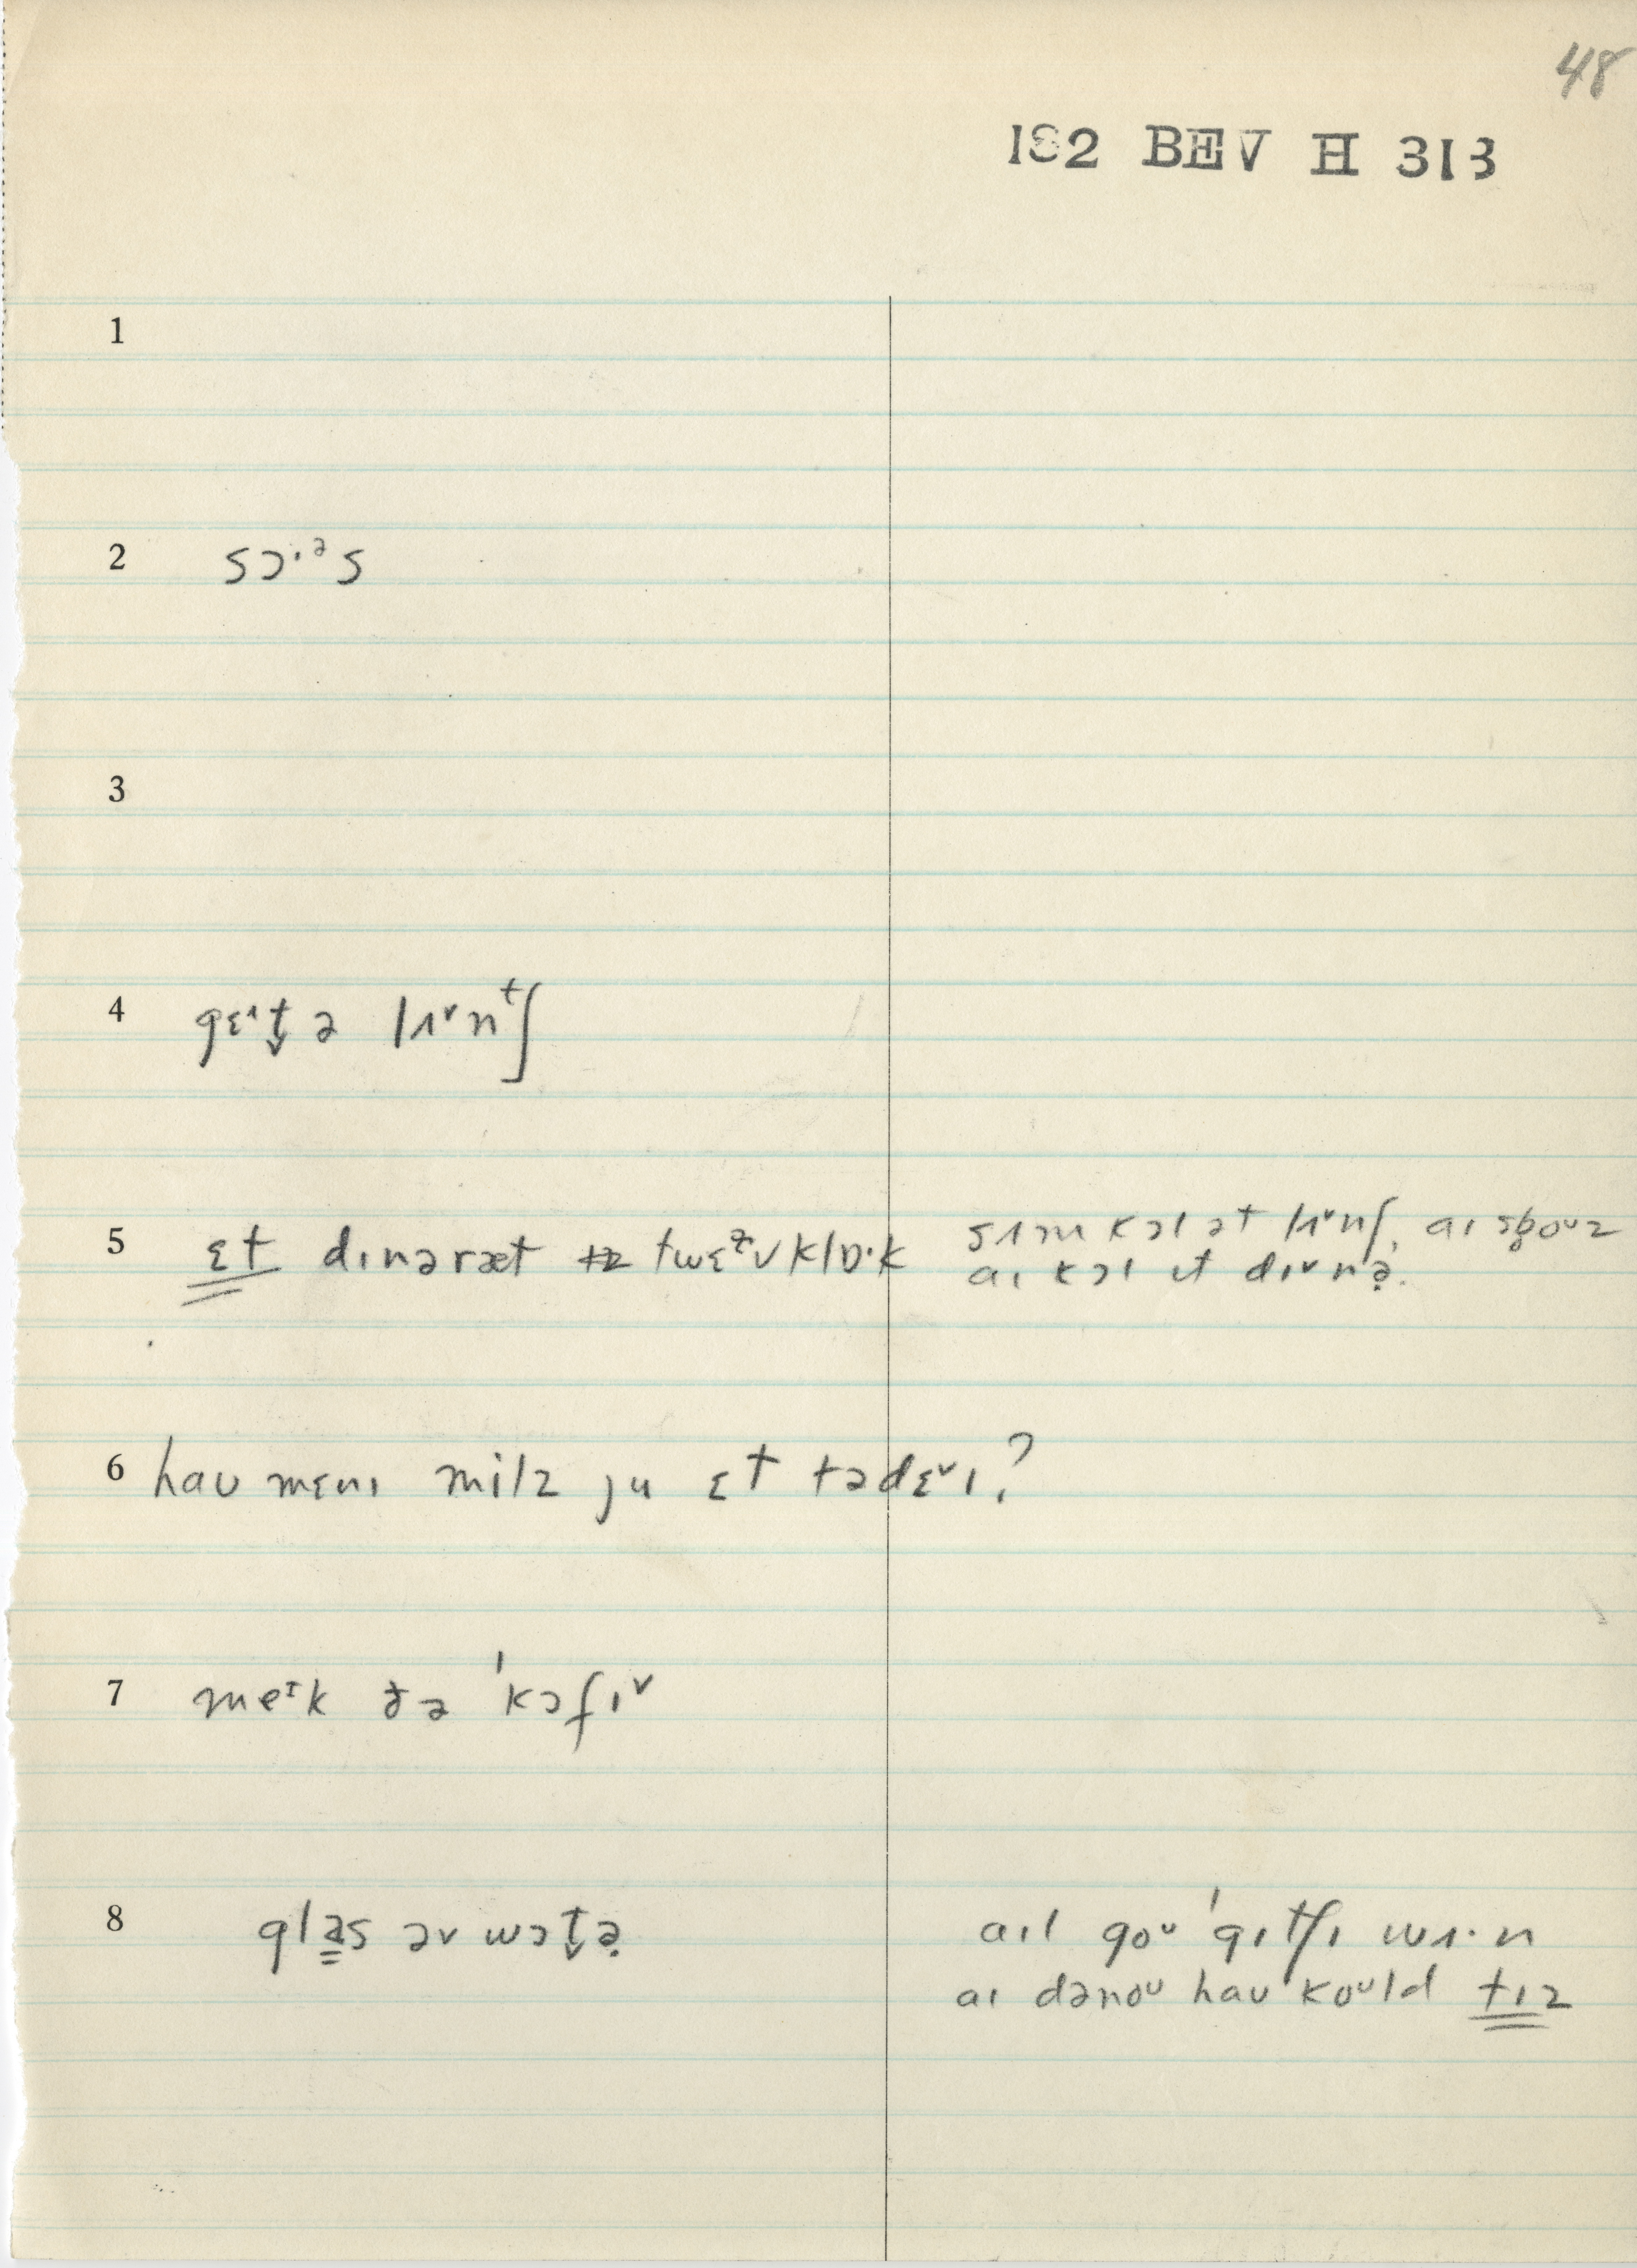 48
182 BEV H 313
1
2 sɔ·ᵊs
3
4 gɛᶦt̬ ə lʌᵛnᵗʃ
5 ɛt dɪnəræt twɛᵊvklɒ·k
sʌm kɔl ət lʌᵛnʃ,
aɪ kɔl ɪt dɪᵛnə̣.
6 hau mɛnɪ milz ju ɛt tədɛᵛɪ?
7 meᶦk ðə ˈkɔfɪᵛ
8 glas əv wɔt̬ə̣
aɪl goᵘ ˈgɪtʃɪ wʌ·n
aɪ dənoᵘ hau koᵘld tɪz